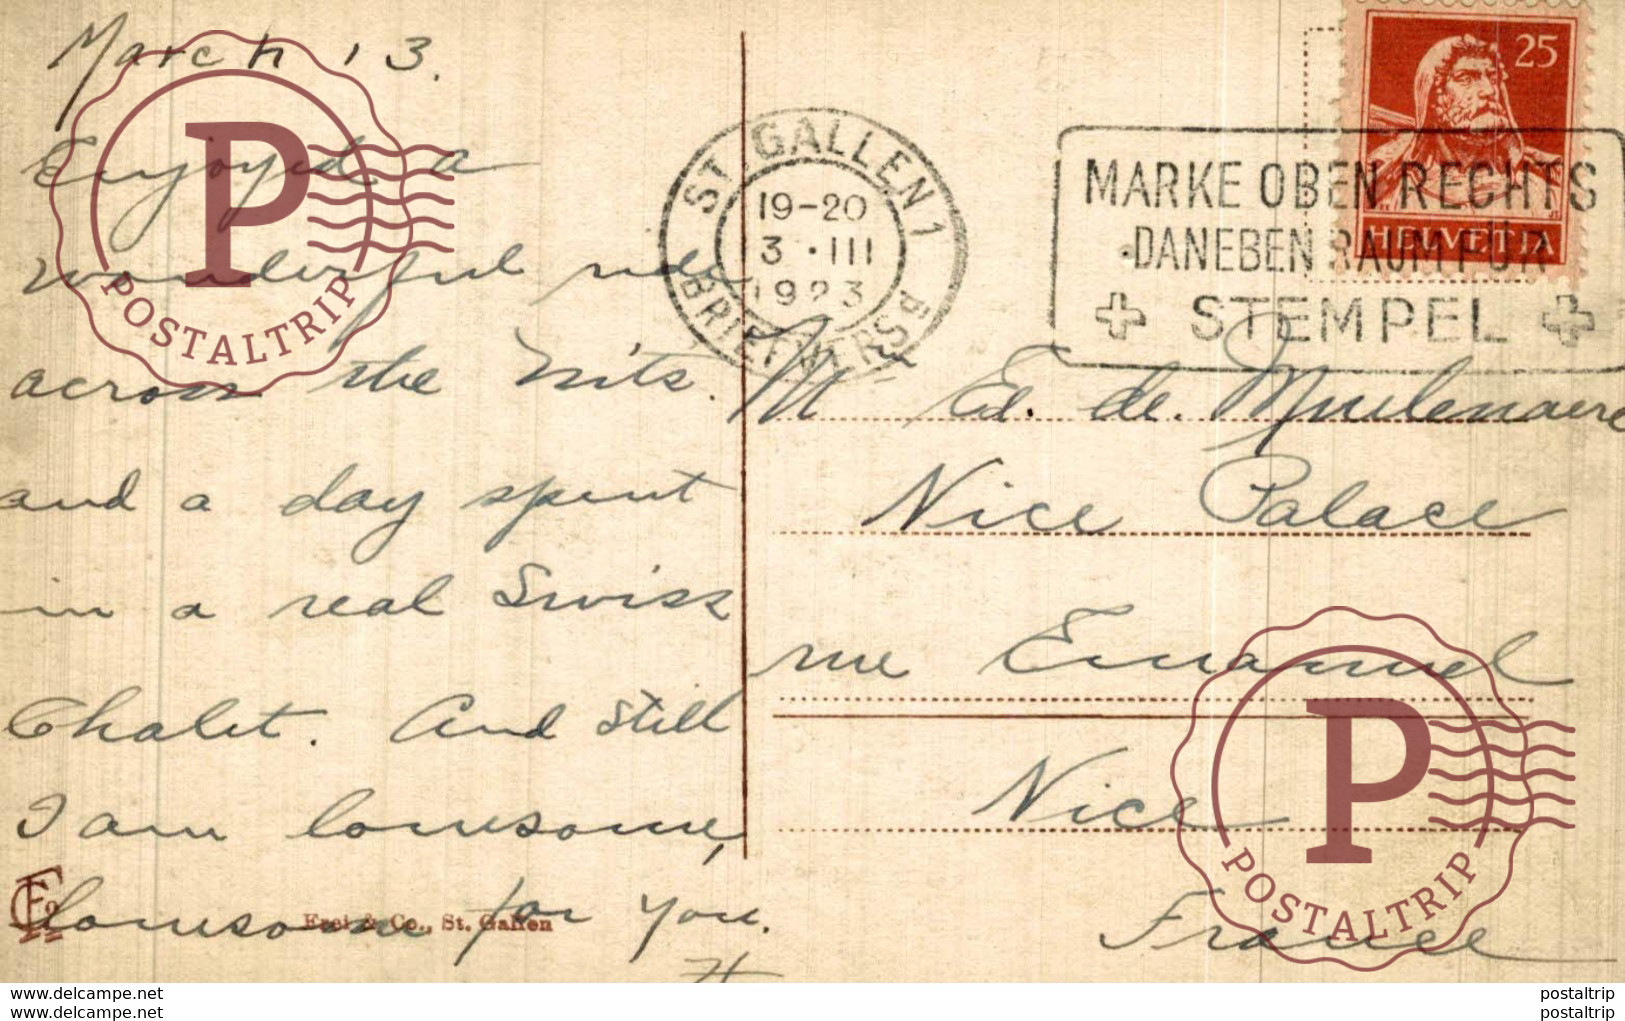 March 13.
Enjoyed a
wonderful ride
across the Mts.
and a day spent
in a real Swiss
Chalet. And still
I am lonesome,
lonesome for you.
H
Frei & Co., St. Gallen
ST. GALLEN 1
19-20
3 · III
1923
BRIEFVERS
MARKE OBEN RECHTS
DANEBEN RAUM FÜR
STEMPEL
25
HELVETIA
Ed. de Meulenaere
Nice Palace
rue Emanuel
Nice
France
P
POSTALTRIP
P
POSTALTRIP
www.delcampe.net
www.delcampe.net
postaltrip
postaltrip